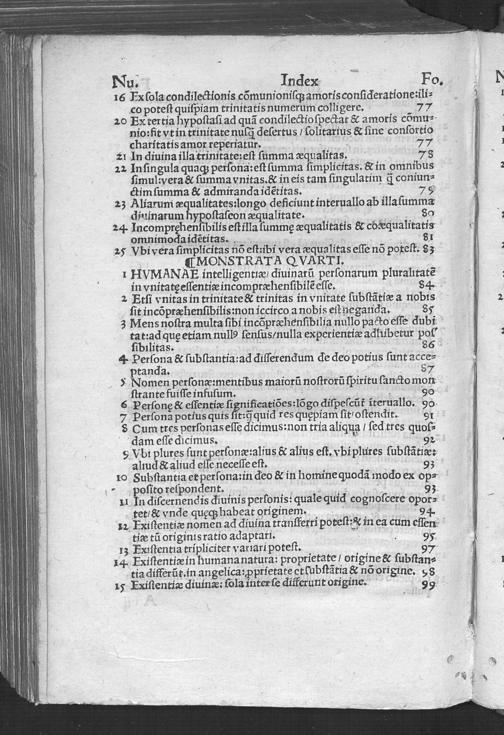 Nu. Index Fo.
16 Ex sola condilectionis cōmunionisq; amoris consideratione: ili⸗
co potest quispiam trinitatis numerum colligere. 77
20 Ex tertia hypostasi ad quā condilectio spectat & amoris cōmu⸗
nio: fit vt in trinitate nusq̄ desertus / solitarius & sine consortio
charitatis amor reperiatur. 77
21 In diuina illa trinitate: est summa æqualitas. 78
22 In singula quaq; persona: est summa simplicitas. & in omnibus
simul: vera & summa vnitas. & in eis tam singulatim q̄ coniun⸗
ctim summa & admiranda idētitas. 79
23 Aliarum æqualitates: longo deficiunt interuallo ab illa summa
diuinarum hypostaseon æqualitate. 80
24 Incompręhensibilis est illa summę æqualitatis & coæqualitatis
omnimoda idētitas. 81
25 Vbi vera simplicitas nō est: ibi vera æqualitas esse nō potest. 83
¶MONSTRATA QVARTI.
1 HVMANAE intelligentiæ / diuinarū personarum pluralitatē
in vnitate essentiæ incomprehensibilē esse. 84
2 Etsi vnitas in trinitate & trinitas in vnitate substātiæ a nobis
sit incōpræhensibilis: non iccirco a nobis est neganda. 85
3 Mens nostra multa sibi incōpræhensibilia nullo pacto esse dubi
tat: ad quę etiam null⁹ sensus / nulla experientiæ adhibetur pos⸗
sibilitas. 86
4 Persona & substantia: ad disserendum de deo potius sunt acce⸗
ptanda. 87
5 Nomen personæ: mentibus maiorū nostrorū spiritu sancto mon
strante fuisse infusum. 90
6 Personę & essentiæ significatiōes: lōgo dispescūt iteruallo. 90
7 Persona potius quis sit: q̄ quid res quępiam sit / ostendit. 91
8 Cum tres personas esse dicimus: non tria aliqua / sed tres quos⸗
dam esse dicimus. 92
9 Vbi plures sunt personæ: alius & alius est. vbi plures substātiæ:
aliud & aliud esse necesse est. 93
10 Substantia et persona: in deo & in homine quodā modo ex op⸗
posito respondent. 93
11 In discernendis diuinis personis: quale quid cognoscere opor⸗
tet / & vnde quęq; habeat originem. 94
12 Existentiæ nomen ad diuina transferri potest: & in ea cum essen
tiæ tū originis ratio adaptari. 95
13 Existentia tripliciter variari potest. 97
14 Existentiæ in humana natura: proprietate / origine & substan⸗
tia differūt. in angelica: ꝓprietate et substātia & nō origine. 98
15 Existentiæ diuinæ: sola inter se differunt origine. 99